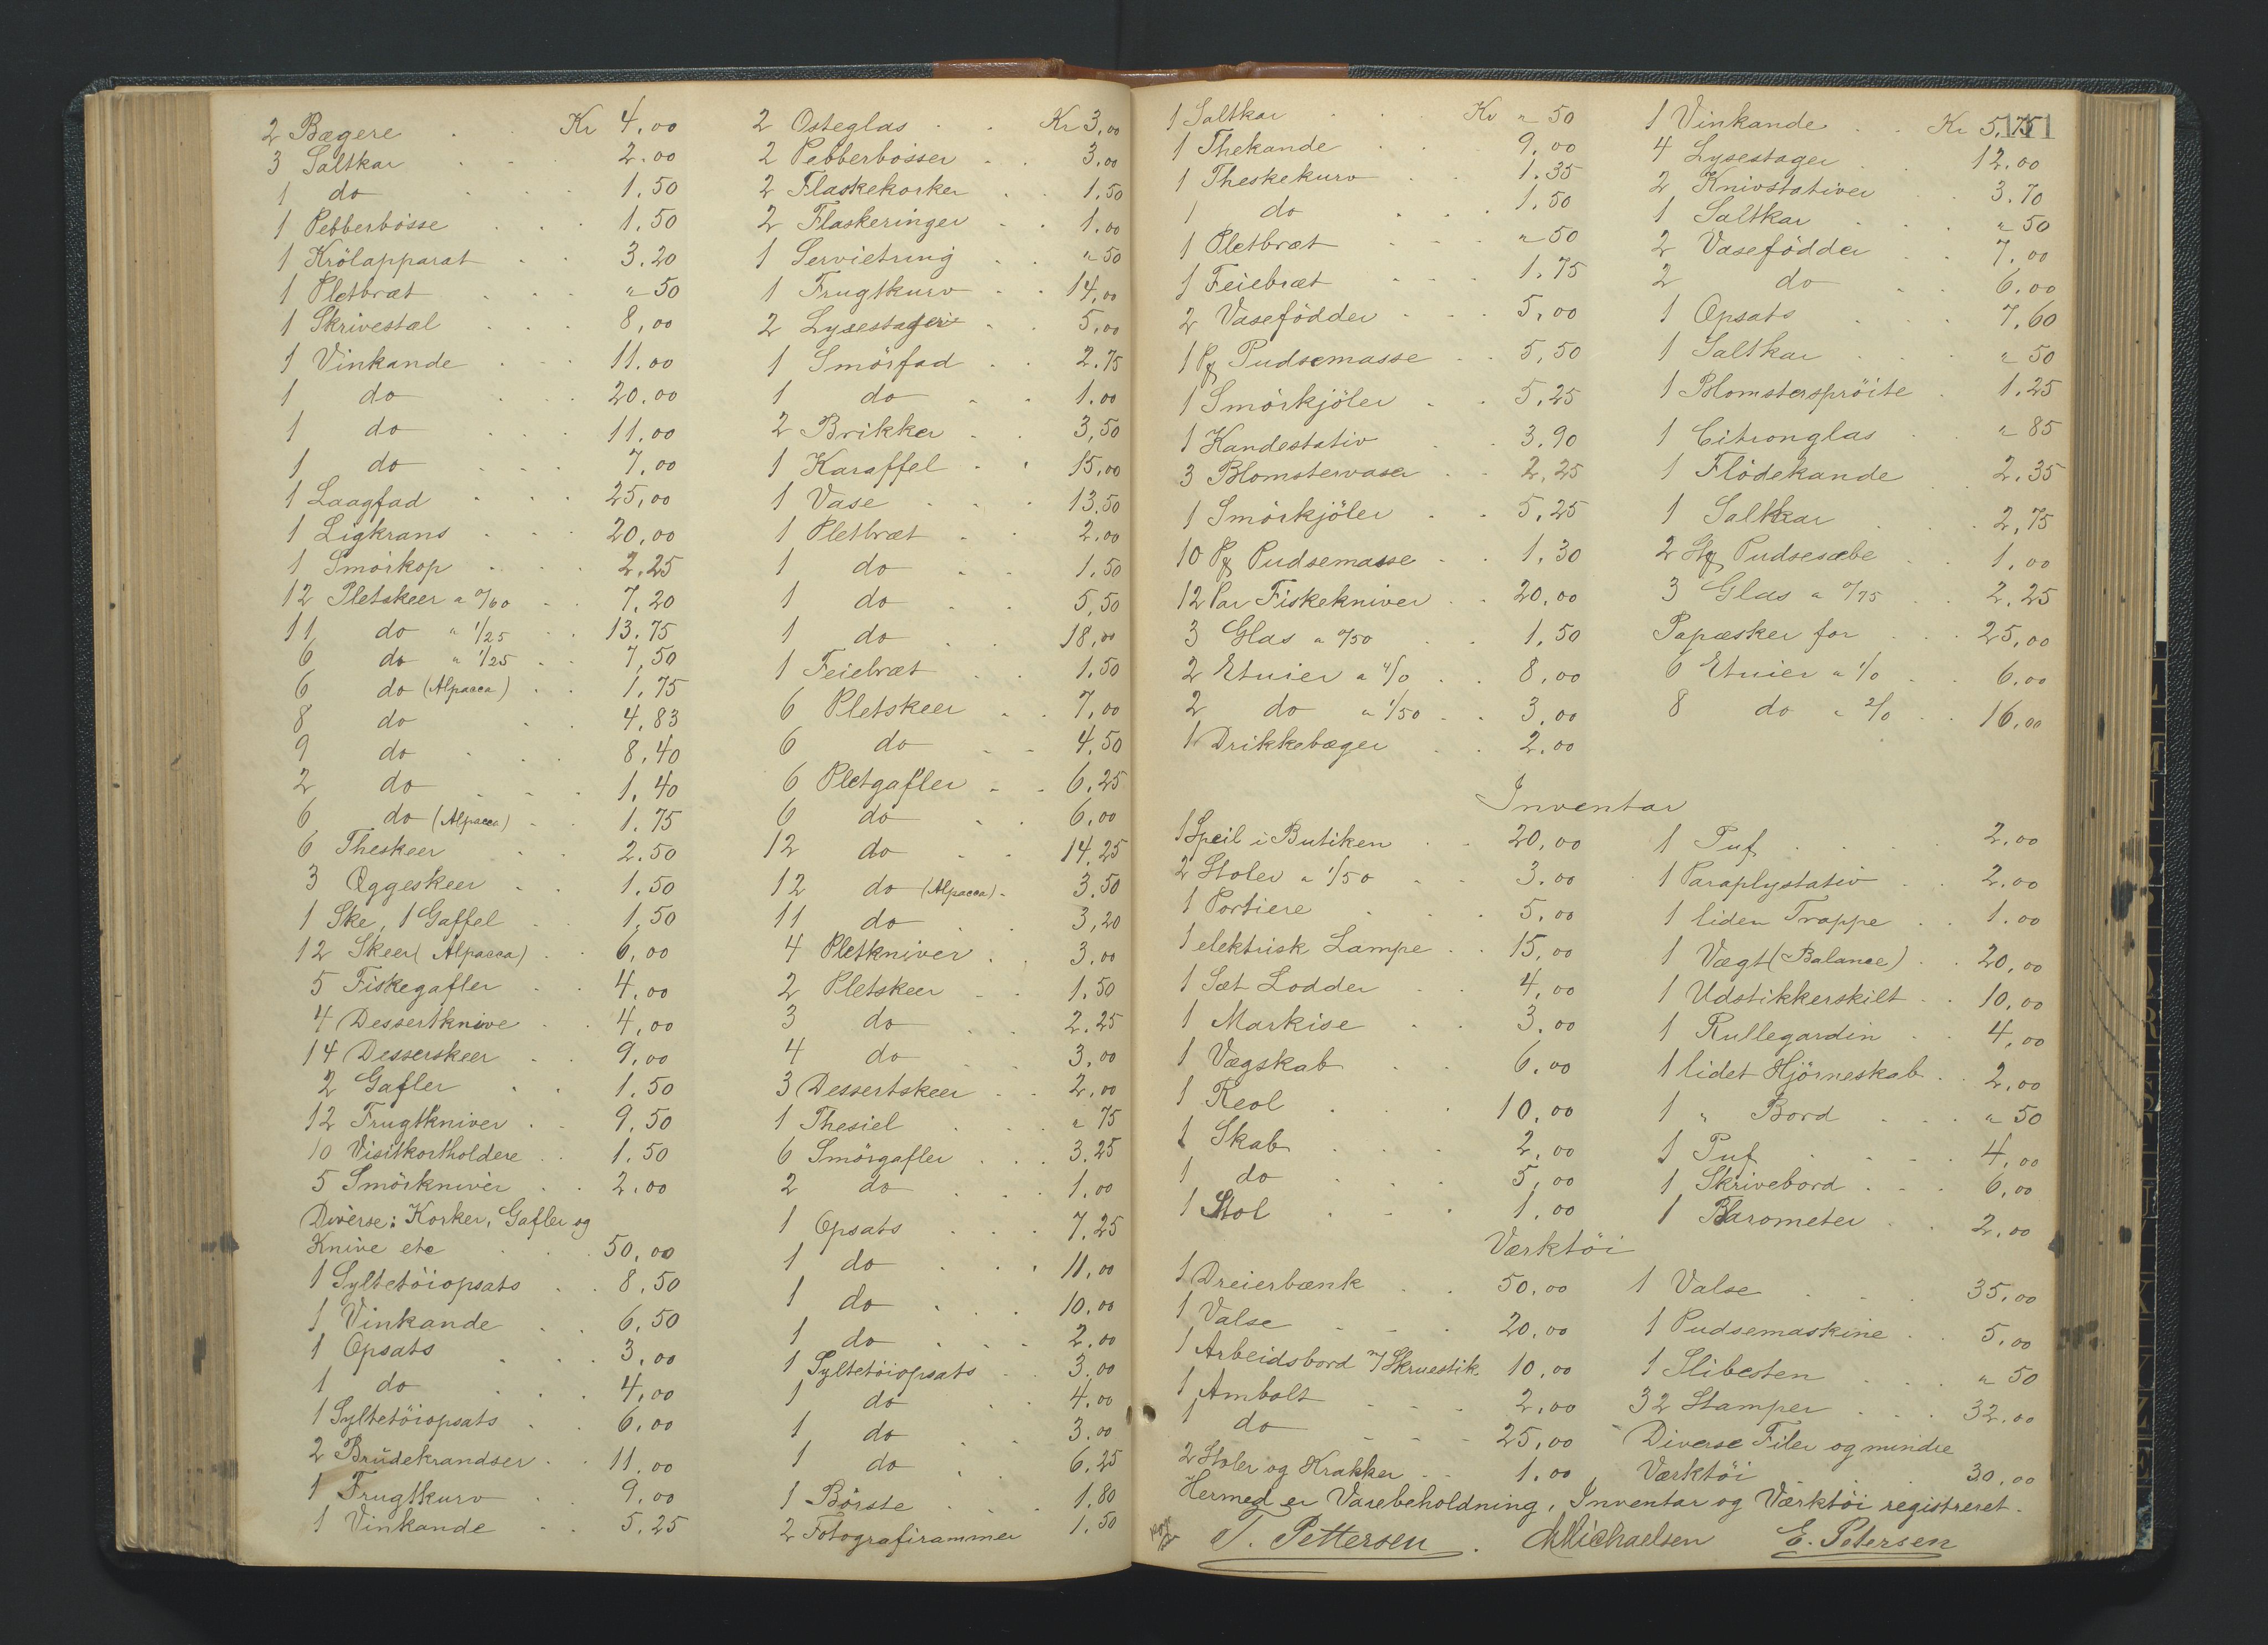 2 Bægere . . Kr 4,00
3 Saltkar . . 2.00
1 do . . 1.50
1 Pebberbösse . . 1.50
1 Krölapparat . . 3.20
1 Pletbræt . . " 50
1 Skrivestal . . 8,00
1 Vinkande . . 11.00
1 do . . 20.00
1 do . . 11.00
1 do . . 7.00
1 Laagfad . . 25,00
1 Ligkrans . . 20,00
1 Smörkop . . 2.25
12 Pletskeer a 0/60 . . 7,20
11 do " 1/25 . . 13.75
6 do " 1/25 . . 7,50
6 do (Alpacca) . . 1.75
8 do . . 4,83
9 do . . 8,40
2 do . . 1,40
6 do (Alpacca) . . 1.75
6 Theskeer . . 2.50
3 Æggeskeer . . 1.50
1 Ske, 1 Gaffel . . 1,50
12 Skeer (Alpacca) . . 6,00
5 Fiskegafler . . 4,00
4 Dessertknive . . 4,00
14 Desserskeer . . 9,00
2 Gafler . . 1.50
12 Frugtkniver . . 9.50
10 Visitkortholdere . . 1.50
5 Smörkniver . . 2.00
Diverse: Korker, Gafler og
Knive etc . . 50,00
1 Syltetöiopsats . . 8,50
1 Vinkande . . 6,50
1 Opsats . . 3,00
1 do . . 4,00
1 Syltetöiopsats . . 6.00
2 Brüdekrandser . . 11.00
1 Frugtkurv . . 9.00
1 Vinkande . . 5.25
2 Osteglas . . Kr 3,00
2 Pebberbösser . . 3.00
2 Flaskekorker . . 1.50
2 Flaskeringer . . 1.00
1 Servietring . . " 50
1 Frugtkurv . . 14,00
2 Lysestager . . 5,00
1 Smörfad . . 2.75
1 do . . 1.00
2 Brikker . . 3,50
1 Karaffel . . 15,00
1 Vase . . 13.50
1 Pletbræt . . 2.00
1 do . . 1.50
1 do . . 5,50
1 do . . 18,00
1 Feiebræt . . 1.50
6 Pletskeer . . 7,00
6 do . . 4.50
6 Pletgafler . . 6,25
6 do . . 6,00
12 do . . 14,25
12 do (Alpacca) . 3.50
11 do . . 3,20
4 Pletkniver . . 3.00
2 Pletskeer . . 1.50
3 do . . 2.25
4 do . . 3,00
3 Dessertskeer . . 2,00
1 Thesiel . . " 75
6 Smörgafler . . 3.25
2 do . . 1.00
1 Opsats . . 7.25
1 do . . 11,00
1 do . . 10.00
1 do . . 2.00
1 Syltetöiopsats . . 3.00
1 do . . 4.00
1 do . . 3.00
1 do . . 6.25
1 Börste . . 1,80
2 Fotografirammer 1.50
171
1 Saltkar . . Kr " 50
1 Thekande . . 9,00
1 Theskekurv . . 1.35
1 do . . 1.50
1 Pletbræt . . " 50
1 Feiebræt . . 1.75
2 Vasefödder . . 5,00
1 Pk Pudsemasse . . 5,50
1 Smörkjöler . . 5.25
1 Kandestativ . . 3.90
3 Blomstervaser . . 2,25
1 Smörkjöler . . 5.25
10 Pk Pudsemasse . . 1.30
12 Par Fiskekniver . . 20,00
3 Glas a 0/50 . . 1.50
2 Etuier a 4/0 . . 8,00
2 do " 1/50 . . 3,00
1 Drikkebæger . . 2.00
1 Vinkande . . Kr 5,75
4 Lysestager . . 12.00
2 Knivstativer . . 3.70
1 Saltkar . . " 50
2 Vasefödder . . 7,00
2 do . . 6,00
1 Opsats . . 7,60
1 Saltkar . . " 50
1 Blomsterspröite . 1.25
1 Citronglas . . " 85
1 Flödekande . . 2.35
1 Saltkar . . 2,75
2 Stk Pudsesæbe . . 1,00
3 Glas a 0/75 . . 2,25
Papæsker for . . 25,00
6 Etuier a 1/0 . . 6.00
8 do " 2/0 . . 16,00
Inventar
1 Speil i Butiken . . 20,00
2 Stoler a 1/50 . . 3.00
1 Portiere . . 5,00
1 elektrisk Lampe . . 15,00
1 Sæt Lodder . . 4,00
1 Markise . . 3.00
1 Vægskab . . 6,00
1 Reol . . 10,00
1 Skab . . 2,00
1 do . . 5,00
1 Stol . . 1,00
1 Puf . . 2,00
1 Paraplystativ . . 2.00
1 liden Trappe . . 1.00
1 Vægt (Balance) . . 20,00
1 Udstikkerskilt . . 10,00
1 Rullegardin . . 4,00
1 lidet Hjörneskab . 2,00
1 " Bord . . " 50
1 Puf . . 4,00
1 Skrivebord . . 6,00
1 Barometer . . 2,00
Værktöi
1 Dreierbænk . . 50,00
1 Valse . . 20,00
1 Arbeidsbord m/Skruestik 10,00
1 Ambolt . . 2,00
1 do . . 25,00
2 Stoler og Krakker . . 1.00
1 Valse . . 35,00
1 Pudsemaskine . . 5.00
1 Slibesten . . " 50
32 Stamper . . 32.00
Diverse Filer og mindre
Værktöi . . 30,00
Hermed er Varebeholdning, Inventar og Værktöi registreret.
T. Pettersen. MMichaelsen E. Petersen